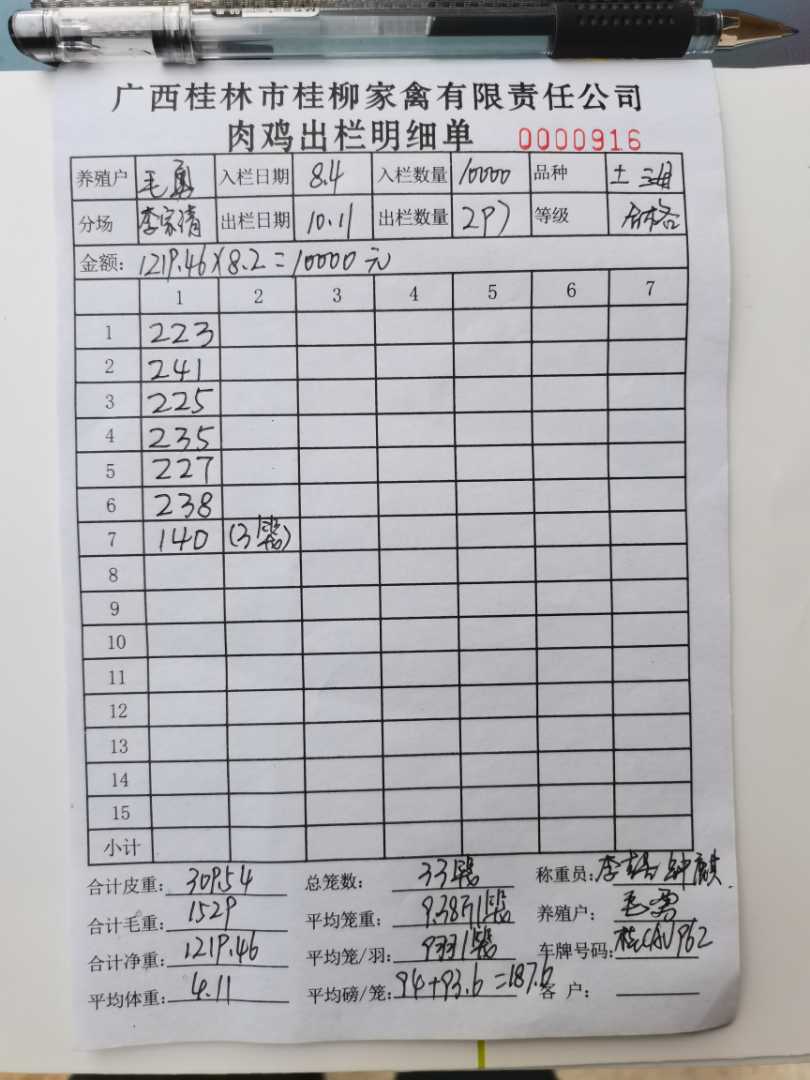 广西桂林市桂柳家禽有限责任公司
肉鸡出栏明细单 0000916
养殖户 毛勇 入栏日期 8.4 入栏数量 10000 品种 土
分场 李宗清 出栏日期 10.11 出栏数量 297 等级 合格
金额: 1219.46×8.2=10000元
1 2 3 4 5 6 7
1 223
2 241
3 225
4 235
5 227
6 238
7 140 (3笼)
8
9
10
11
12
13
14
15
小计
合计皮重: 309.54 总笼数: 33笼 称重员: 钟麒
合计毛重: 1529 平均笼重: 9.38斤/笼 养殖户: 毛勇
合计净重: 1219.46 平均笼/羽: 9羽/笼 车牌号码: 桂CAV962
平均体重: 4.11 平均磅/笼: 94+93.6=187.6 客 户: